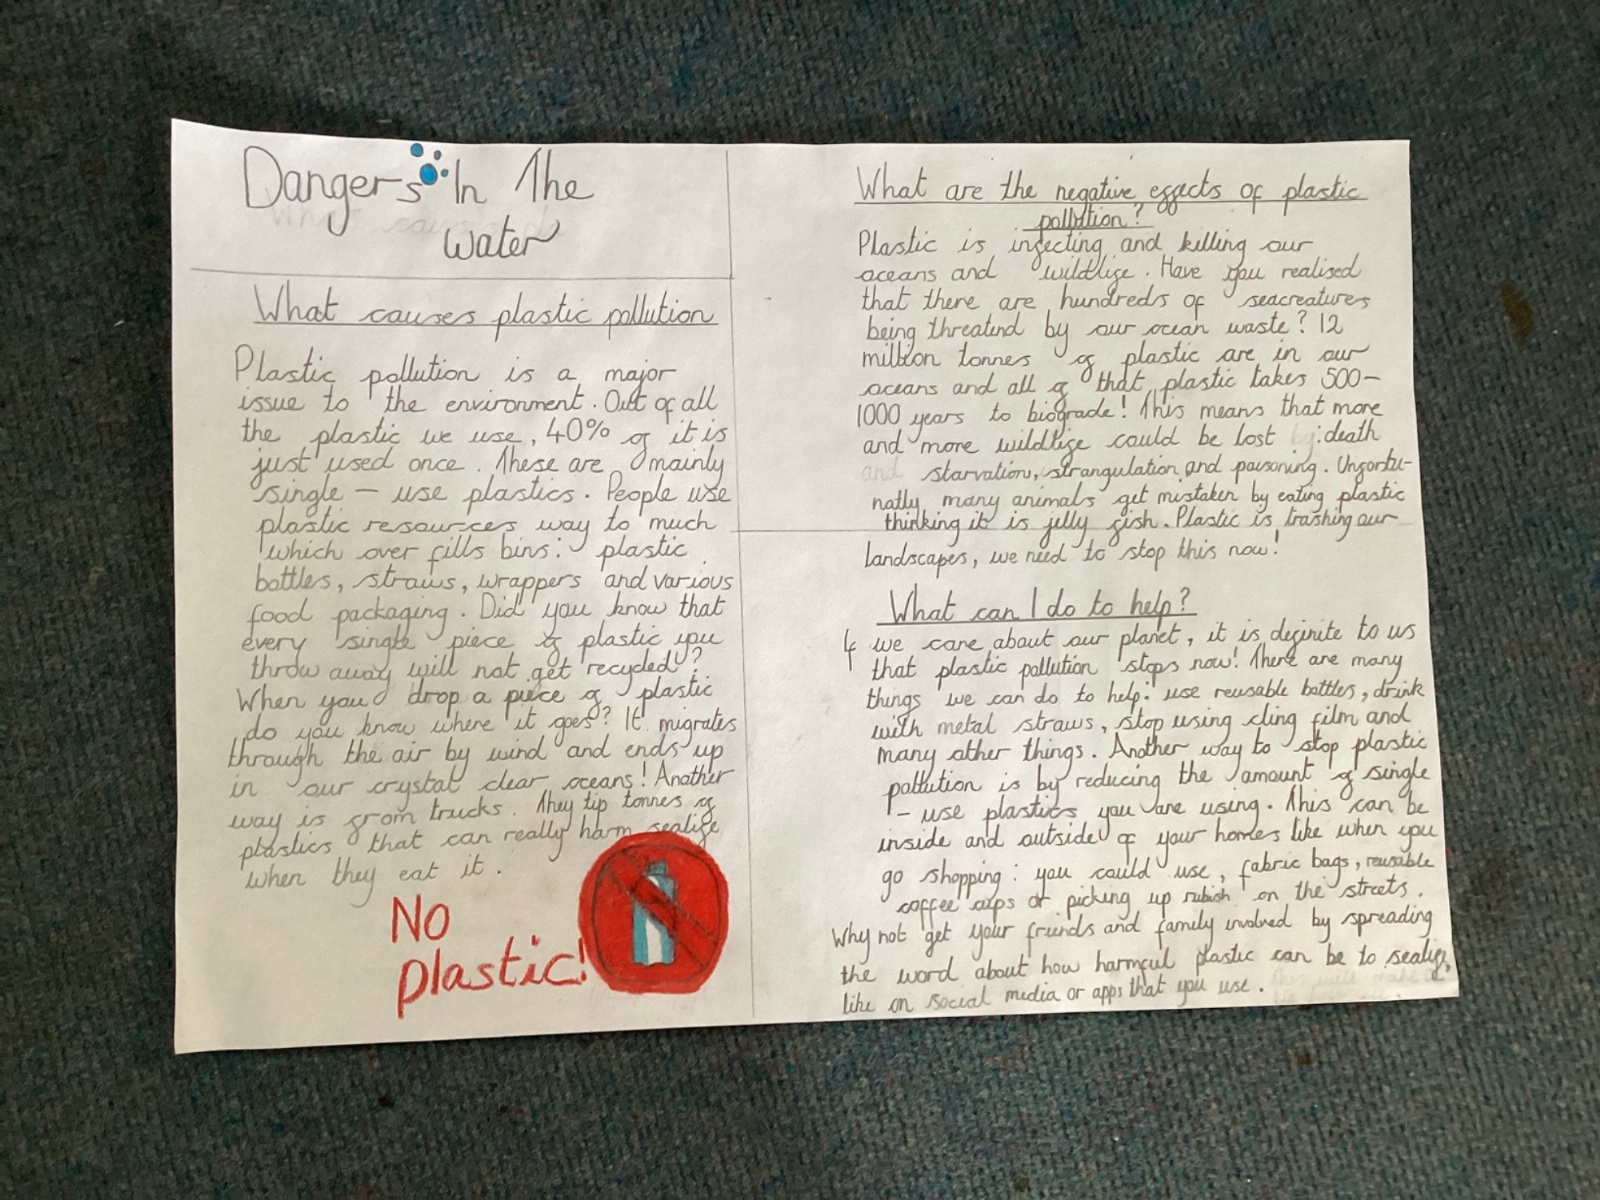 Dangers In The
Water
What causes plastic pollution
Plastic pollution is a major
issue to the environment. Out of all
the plastic we use, 40% of it is
just used once. These are mainly
single - use plastics. People use
plastic resources way to much
which over fills bins: plastic
bottles, straws, wrappers and various
food packaging. Did you know that
every single piece of plastic you
throw away will not get recycled?
When you drop a piece of plastic
do you know where it goes? It migrates
through the air by wind and ends up
in our crystal clear oceans! Another
way is from trucks. They tip tonnes of
plastics that can really harm sealife
when they eat it.
NO
plastic!
What are the negative effects of plastic
pollution?
Plastic is infecting and killing our
oceans and wildlife. Have you realised
that there are hundreds of seacreatures
being threatend by our ocean waste? 12
million tonnes of plastic are in our
oceans and all of that plastic takes 500-
1000 years to biograde! This means that more
and more wildlife could be lost by: death
and starvation, strangulation and poisoning. Unfortu-
natly many animals get mistaken by eating plastic
thinking it is jelly fish. Plastic is trashing our
landscapes, we need to stop this now!
What can I do to help?
If we care about our planet, it is definite to us
that plastic pollution stops now! There are many
things we can do to help: use reusable bottles, drink
with metal straws, stop using cling film and
many other things. Another way to stop plastic
pollution is by reducing the amount of single
- use plastics you are using. This can be
inside and outside of your homes like when you
go shopping: you could use, fabric bags, reusable
coffee cups or picking up rubish on the streets.
Why not get your friends and family involved by spreading
the word about how harmful plastic can be to sealife,
like on social media or apps that you use.